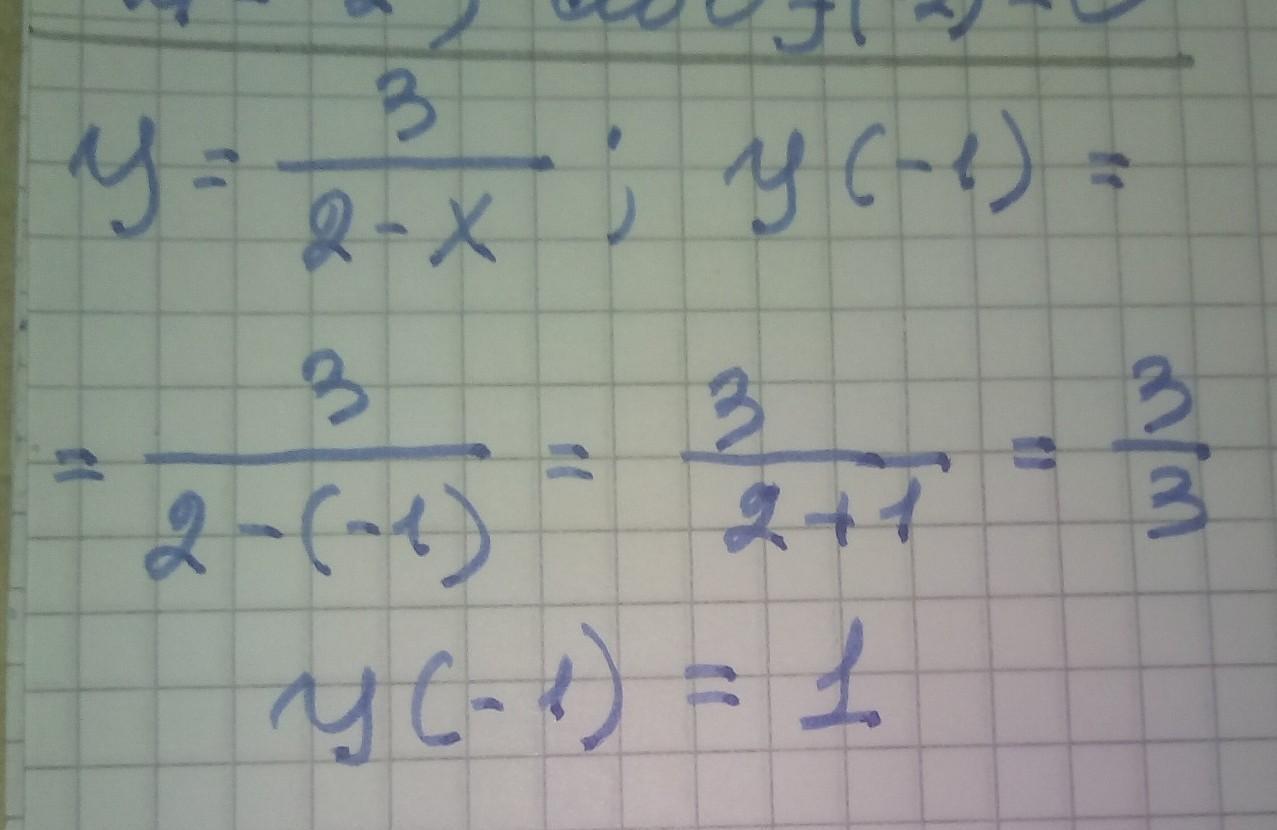 y = 3/(2 - x) ; y(-1) =
= 3/(2 - (-1)) = 3/(2 + 1) = 3/3
y(-1) = 1